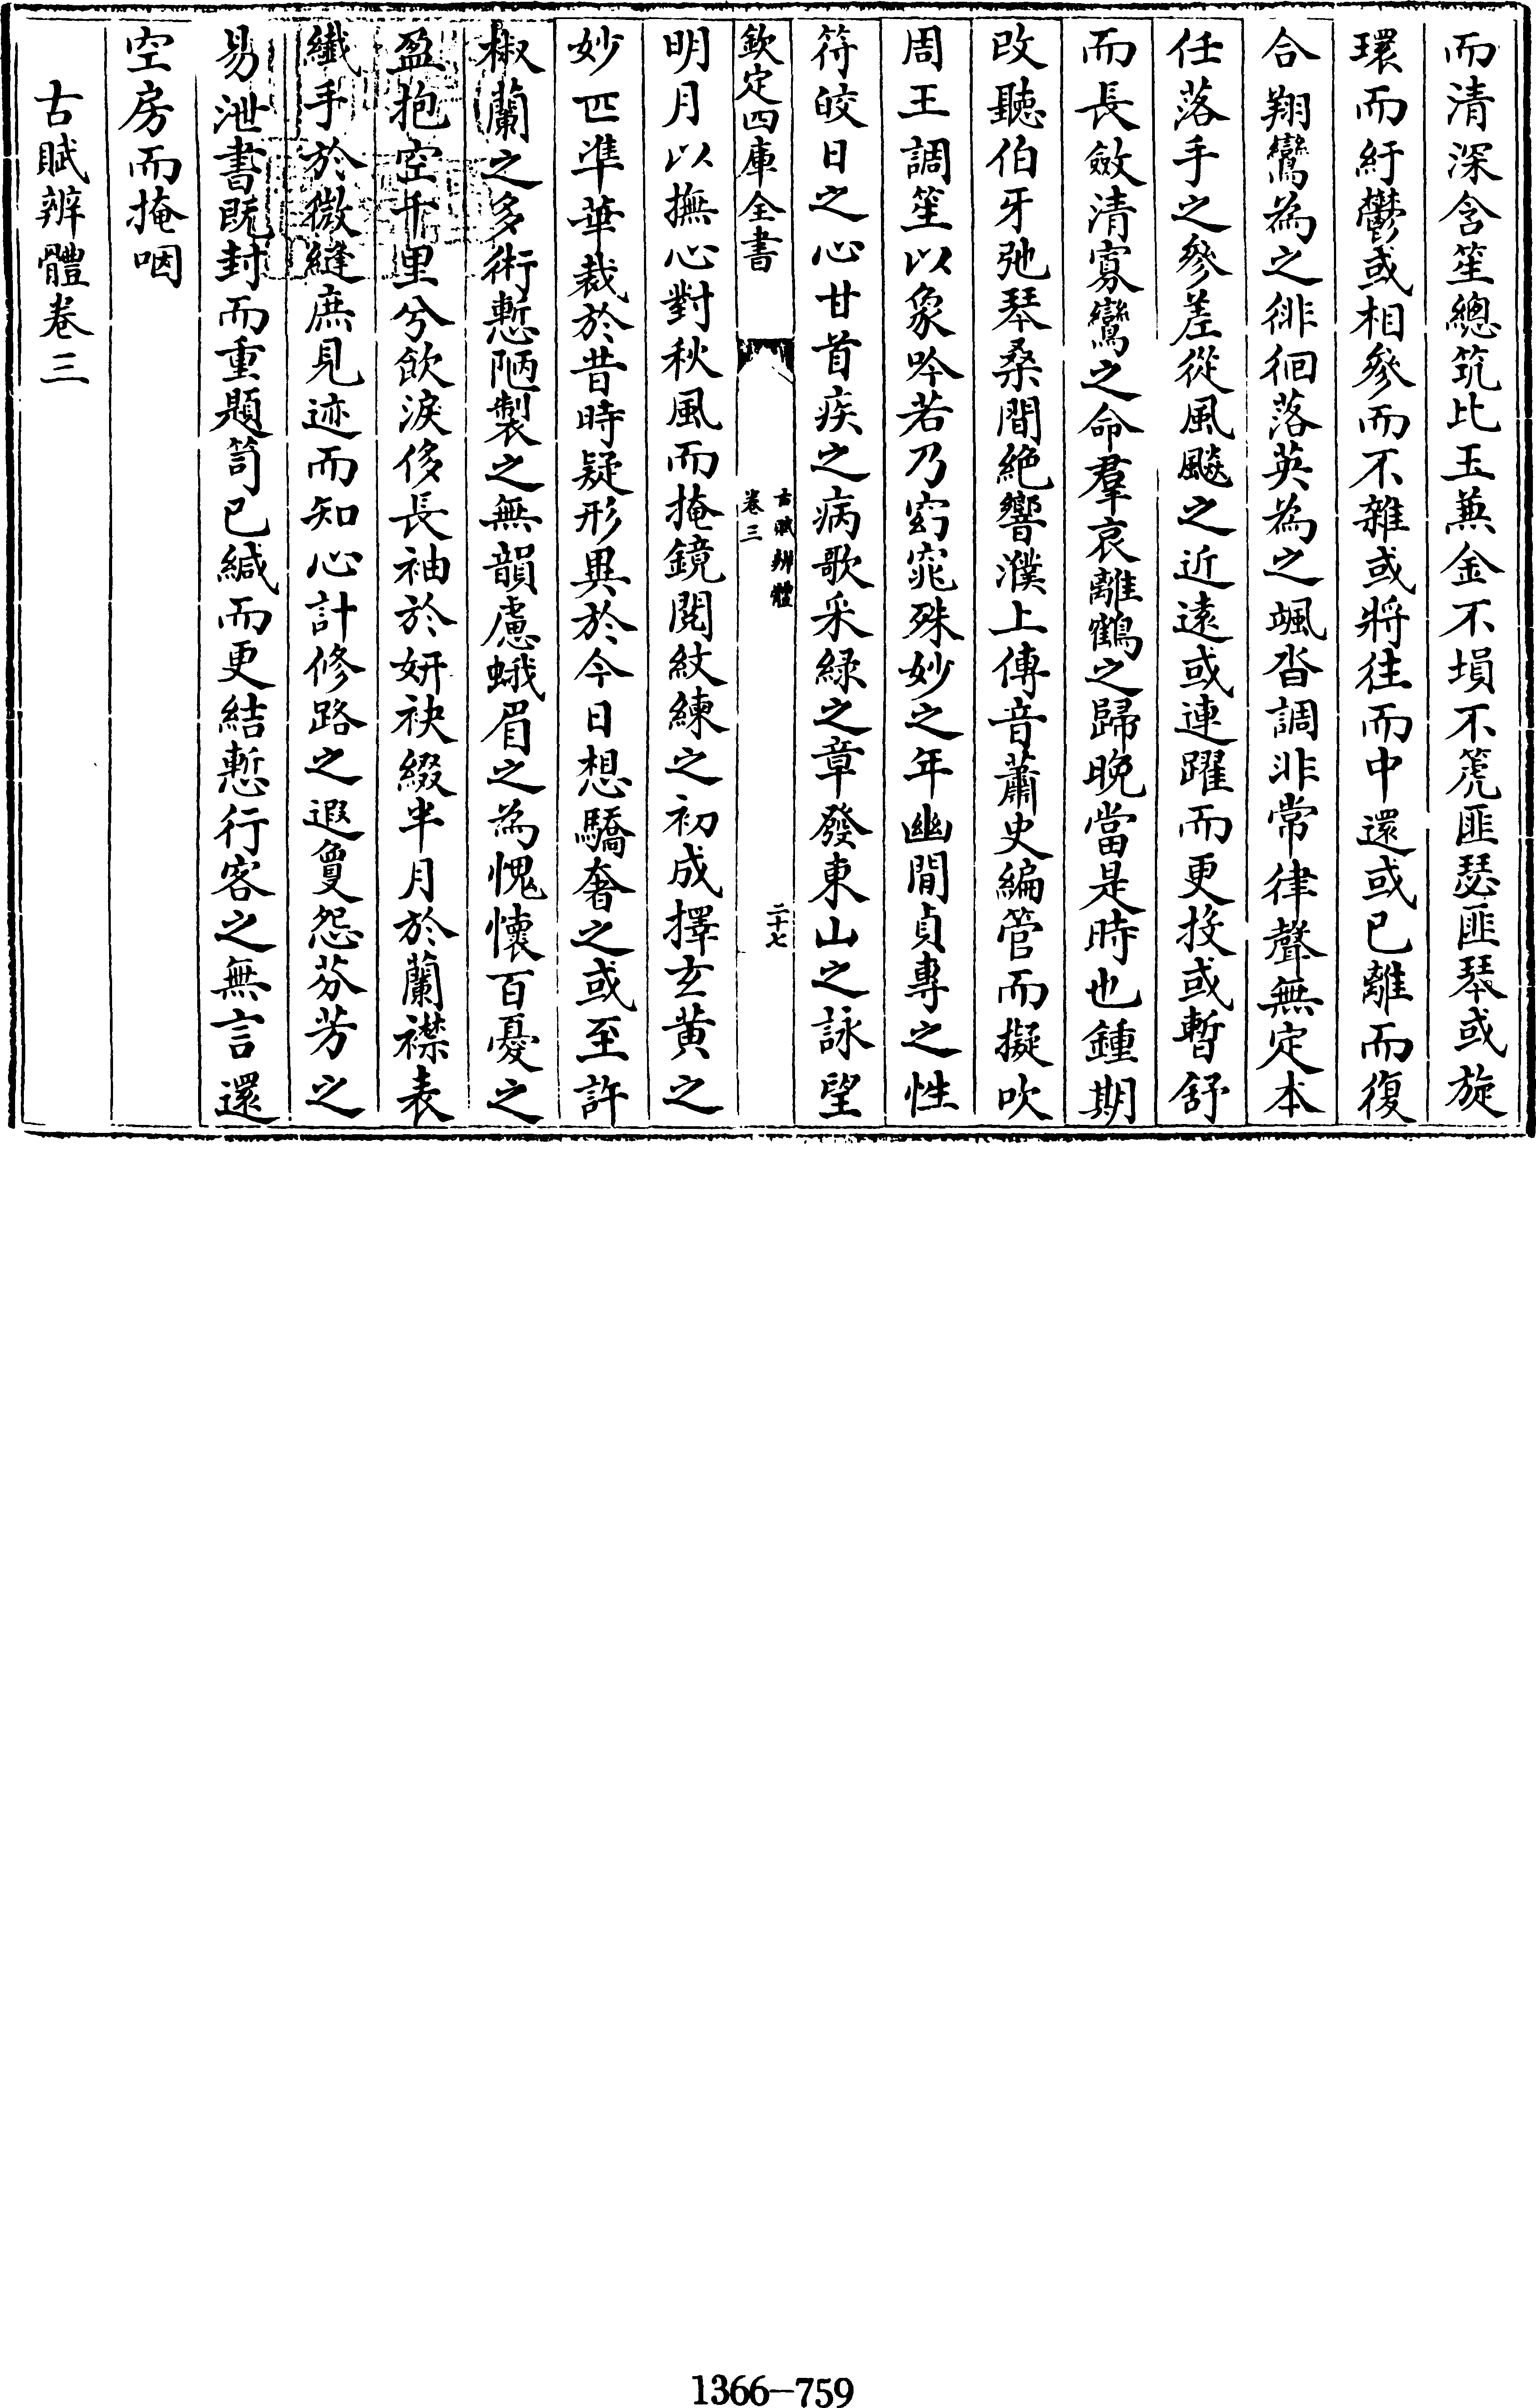 而清深含笙總筑比玉兼金不塤不箎匪瑟匪琴或旋
環而紆鬱或相參而不雜或將往而中還或已離而復
合翔鸞為之徘徊落英為之颯沓調非常律聲無定本
任落手之參差從風飈之近遠或連躍而更投或暫舒
而長斂清寡鸞之命羣哀離鶴之歸晚當是時也鍾期
改聽伯牙弛琴桑間絶響濮上傳音蕭史編管而擬吹
周王調笙以象吟若乃窈窕殊妙之年幽閒貞專之性
符皎日之心甘首疾之病歌采緑之章發東山之詠望
欽定四庫全書
古賦辨體
卷三
二十七
明月以撫心對秋風而掩鏡閱紋練之初成擇玄黄之
妙匹準華裁於昔時疑形異於今日想驕奢之或至許
椒蘭之多術慙陋製之無韻慮蛾眉之為愧懷百憂之
盈抱空千里兮飲淚侈長袖於妍袂綴半月於蘭襟表
纖手於微縫庶見迹而知心計修路之遐敻怨芬芳之
易泄書既封而重題笥已緘而更結慙行客之無言還
空房而掩咽
古賦辨體卷三
1366—759